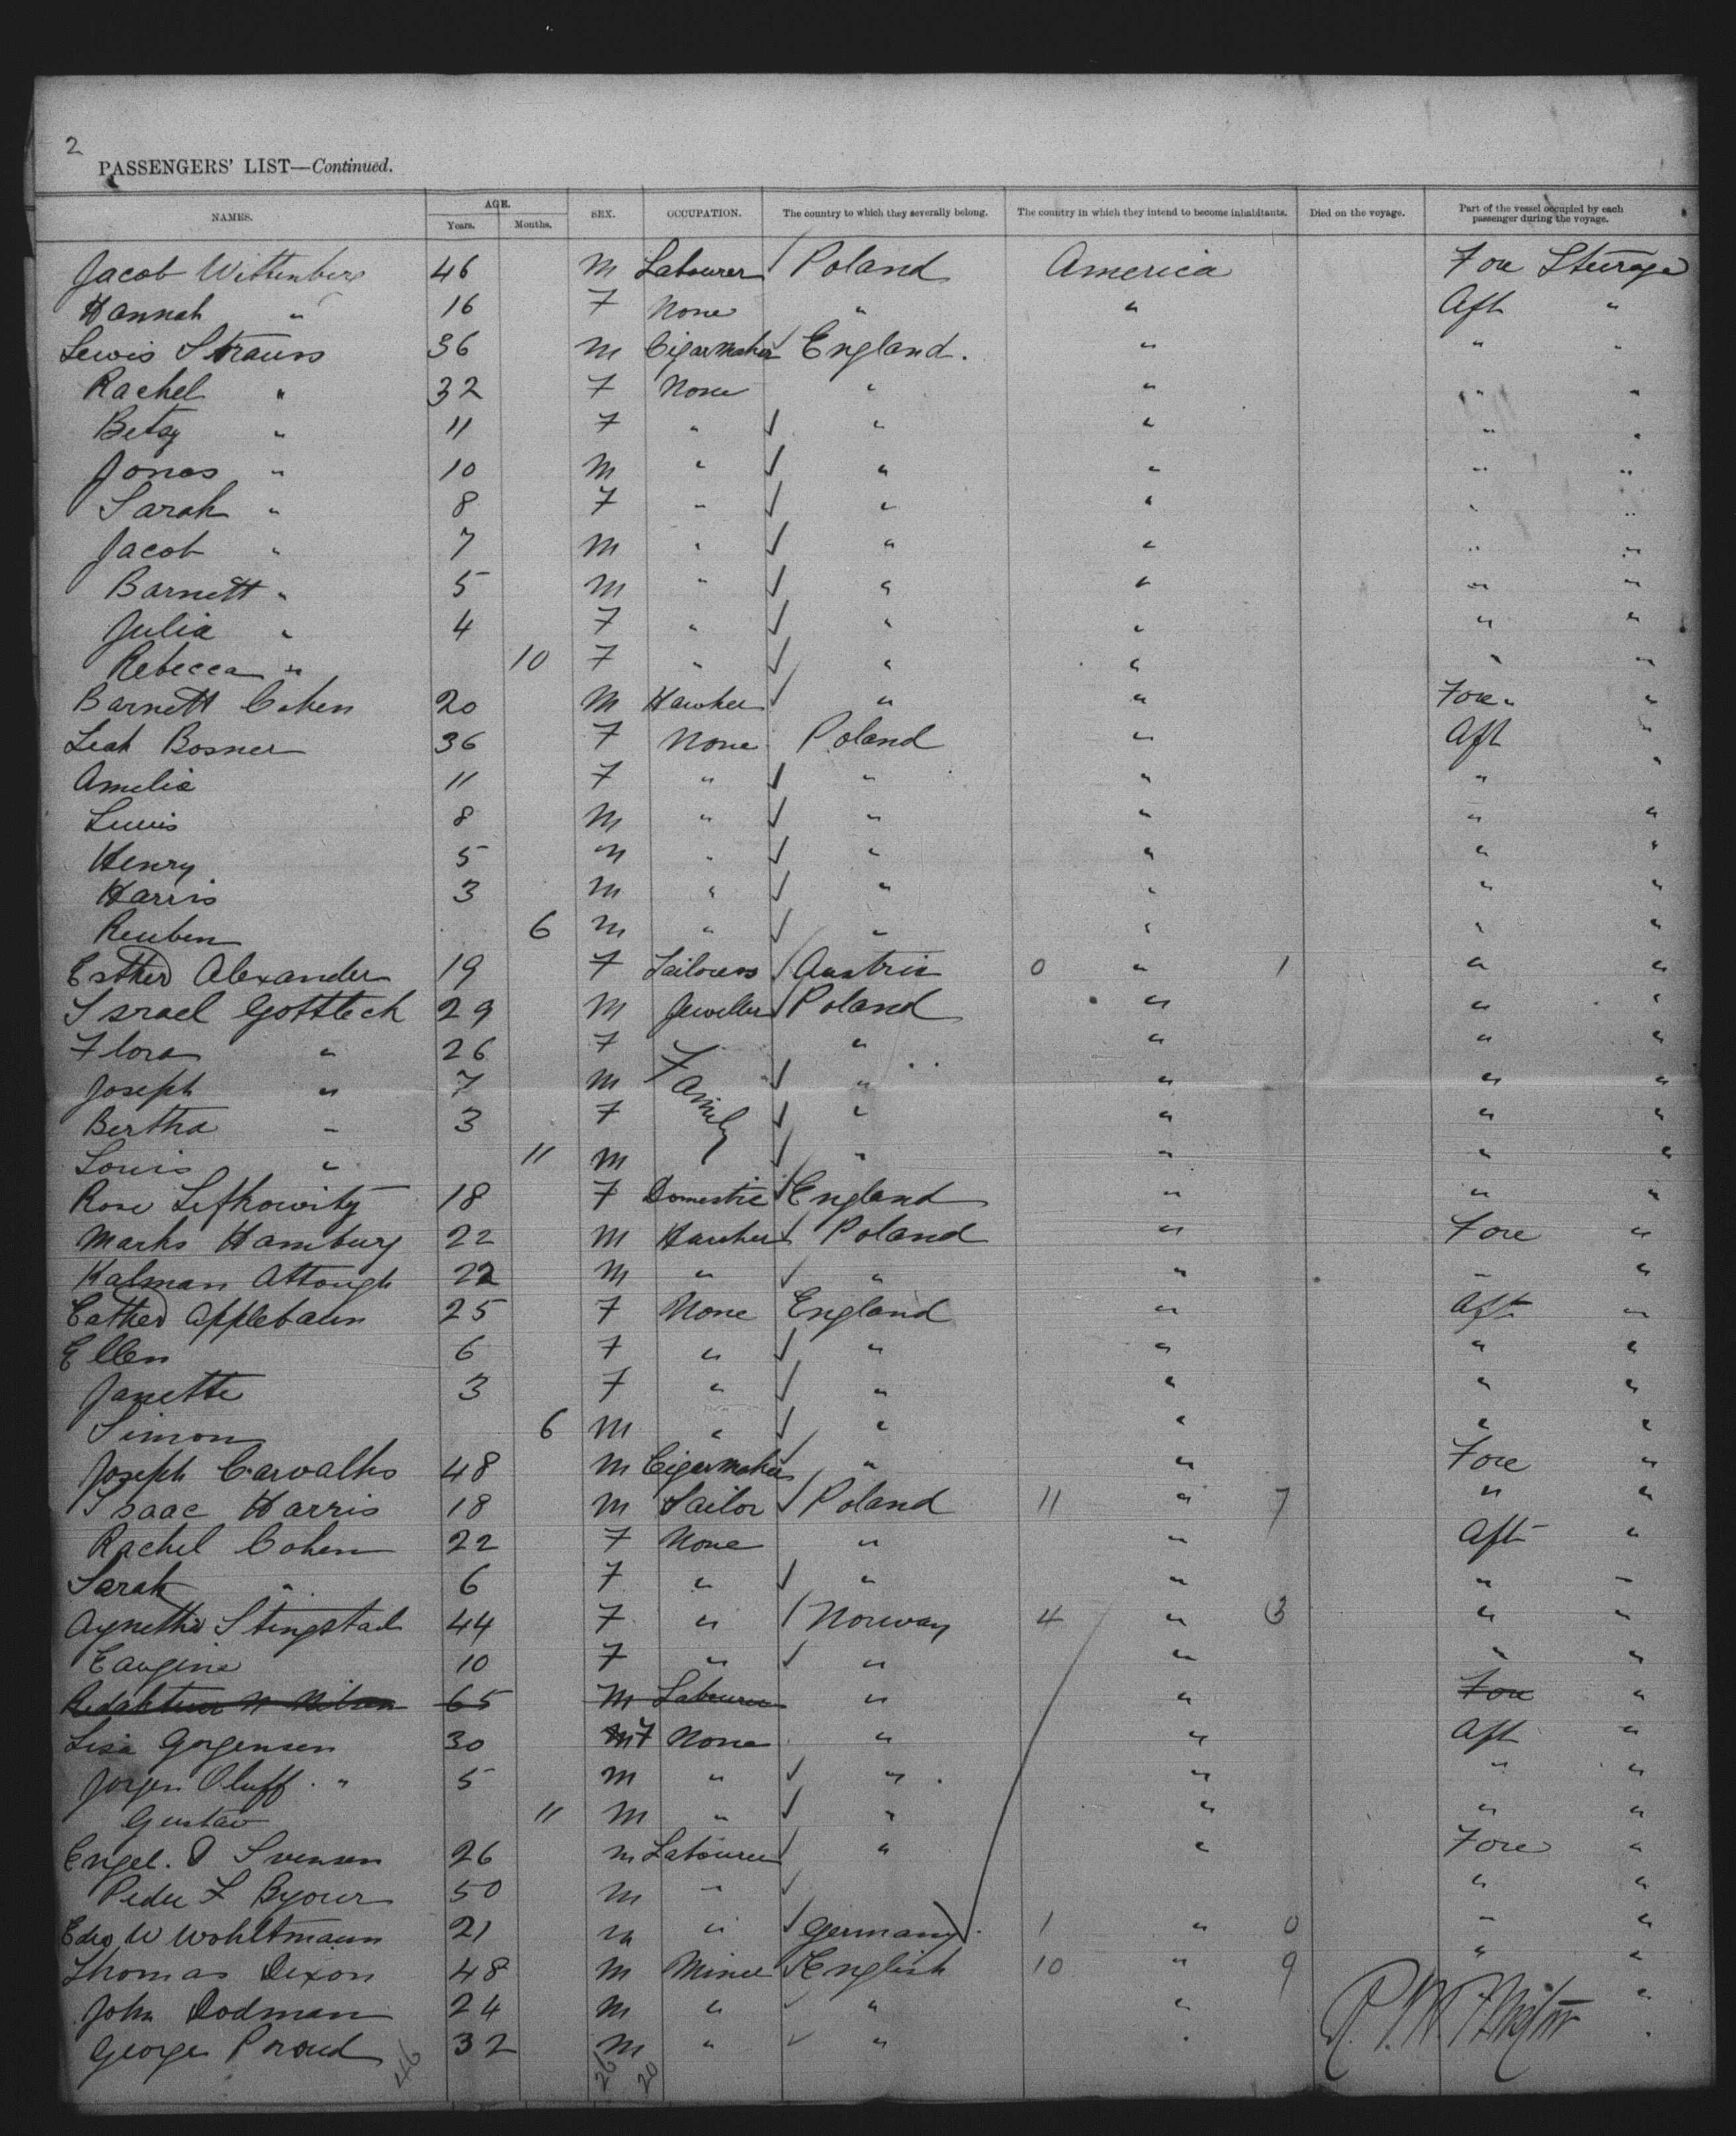 2
PASSENGERS' LIST—Continued.
NAMES. AGE. Years. Months. SEX. OCCUPATION. The country to which they severally belong. The country in which they intend to become inhabitants. Died on the voyage. Part of the vessel occupied by each passenger during the voyage.
Jacob Wittenberg 46 M Labourer Poland America Fore Steerage
Hannah " 16 F None " " Aft "
Lewis Strauss 36 M Cigarmaker England. " " "
Rachel " 32 F None " " " "
Betsy " 11 F " ✓ " " " "
Jonas " 10 M " ✓ " " " "
Sarah " 8 F " ✓ " " " "
Jacob " 7 M " ✓ " " " "
Barnett " 5 M " ✓ " " " "
Julia " 4 F " ✓ " " " "
Rebecca " 10 F " ✓ " " " "
Barnett Cohen 20 M Hawker ✓ " " Fore "
Leah Bosner 36 F None Poland " Aft "
Amelia 11 F " ✓ " " " "
Lewis 8 M " ✓ " " " "
Henry 5 M " ✓ " " " "
Harris 3 M " ✓ " " " "
Reuben 6 M " ✓ " " " "
Esther Alexander 19 F Tailoress ✓ Austria 0 " 1 " "
Israel Gottlech 29 M Jeweller ✓ Poland " " "
Flora " 26 F Family " " " "
Joseph " 7 M ✓ " " " "
Bertha " 3 F ✓ " " " "
Louis " 11 M ✓ " " " "
Rose Lefkowitz 18 F Domestic ✓ England " " "
Marks Hamburg 22 M Hawker ✓ Poland " Fore "
Kalman 22 M " ✓ " " " "
Esther Applebaum 25 F None England " Aft "
Ellen 6 F " ✓ " " " "
Janette 3 F " ✓ " " " "
Simon 6 M " ✓ " " " "
Joseph Carvalho 48 M Cigarmaker " " Fore "
Isaac Harris 18 M Tailor ✓ Poland 11 " 7 " "
Rachel Cohen 22 F None " " Aft "
Sarah " 6 F " ✓ " " " "
Agnethe Stingstad 44 F " ✓ Norway 4 " 3 " "
Eaugine 10 F " ✓ " " " "
65 M Labourer " " Fore "
Lisa Gorgensen 30 F None " " Aft "
Jorgen Oluff " 5 M " ✓ " " " "
Gustav 11 M " ✓ " " " "
Engel. O Svensen 26 M Labourer ✓ " " Fore "
Peder F 50 M " ✓ " "
Edw W Wohltmann 21 M " ✓ Germany 1 " 0 " "
Thomas Dixon 48 M Miner ✓ English 10 " 9 " "
John Dodman 24 M " ✓ " " "
George Proud 32 M " ✓ " "
46 26 20